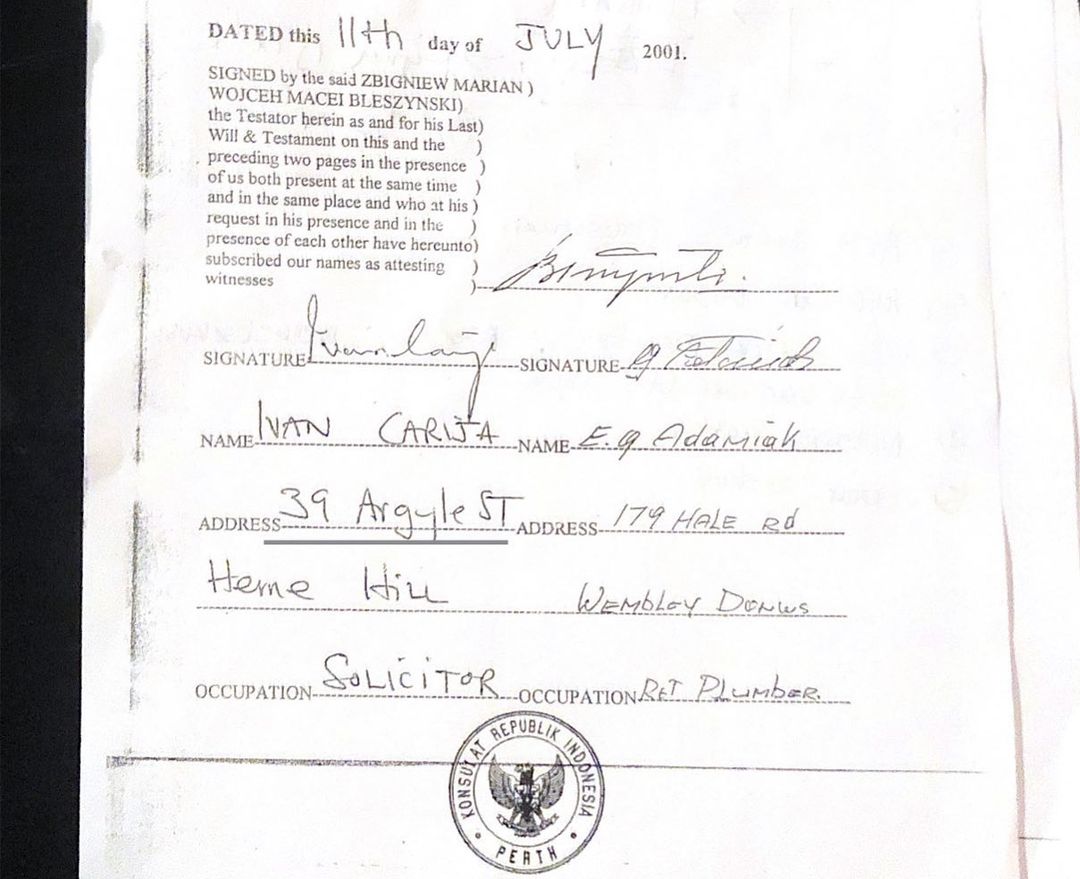 DATED this 11th day of JULY 2001.
SIGNED by the said ZBIGNIEW MARIAN )
WOJCEH MACEI BLESZYNSKI)
the Testator herein as and for his Last)
Will & Testament on this and the )
preceding two pages in the presence )
of us both present at the same time )
and in the same place and who at his )
request in his presence and in the )
presence of each other have hereunto)
subscribed our names as attesting )
witnesses )
SIGNATURE SIGNATURE
NAME IVAN CARIJA NAME E. G Adamiak
ADDRESS 39 Argyle ST ADDRESS 179 HALE Rd
Herne Hill WEMBLEY DONWS
OCCUPATION SOLICITOR OCCUPATION RET PLUMBER.
KONSULAT REPUBLIK INDONESIA
PERTH